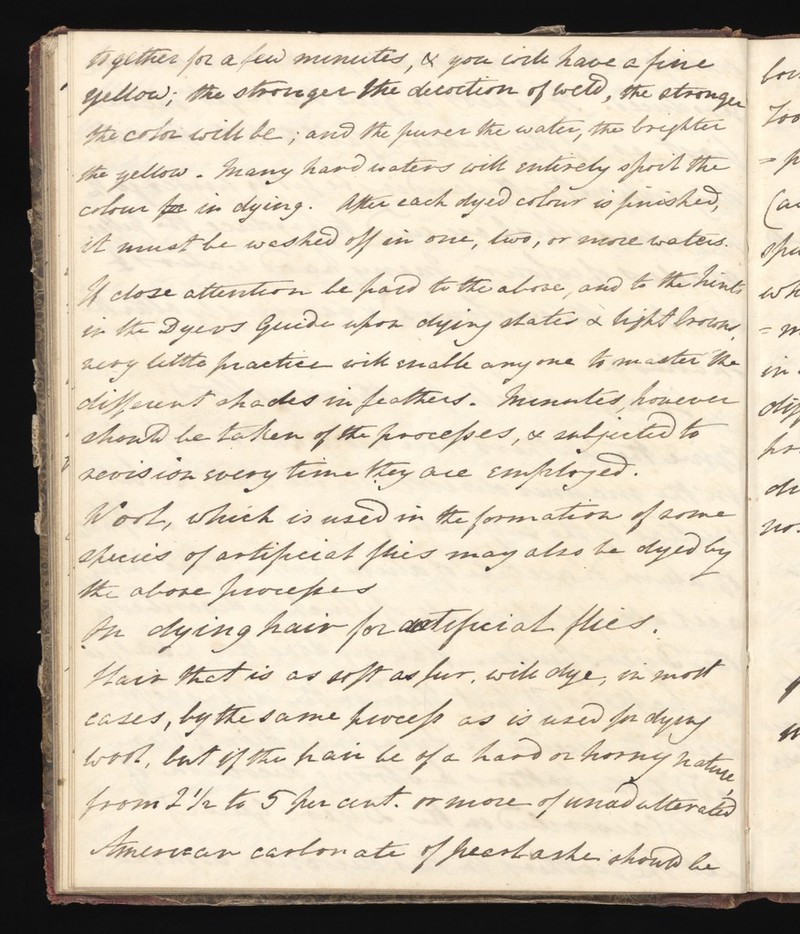 together for a few minutes, & you will have a fine
yellow; the stronger the decoction of weld, the stronger
the color will be; and the purer the water, the brighter
the yellow. Many hard waters will entirely spoil the
colour in dying. After each dyed colour is finished,
it must be washed off in one, two, or more waters.
If close attention be paid to the above, and to the hints
in the Dyers Guide upon dying slates & light browns,
very little practice will enable any one to master the
different shades in feathers. Minutes, however
should be taken of the processes, & subjected to
revision every time they are employed.
Wool, which is used in the formation of some
species of artificial flies may also be dyed by
the above processes
On dying hair for artificial flies.
Hair that is as soft as fur, will dye, in most
cases, by the same process as is used for dying
wool, but if the hair be of a hard or horny nature,
from 2 1/2 to 5 per cent. or more of unadulterated
American carbonate of pearlashe should be
lou
Too
= p
(a
spi
wh
= m
in
diff
pr
di
no.